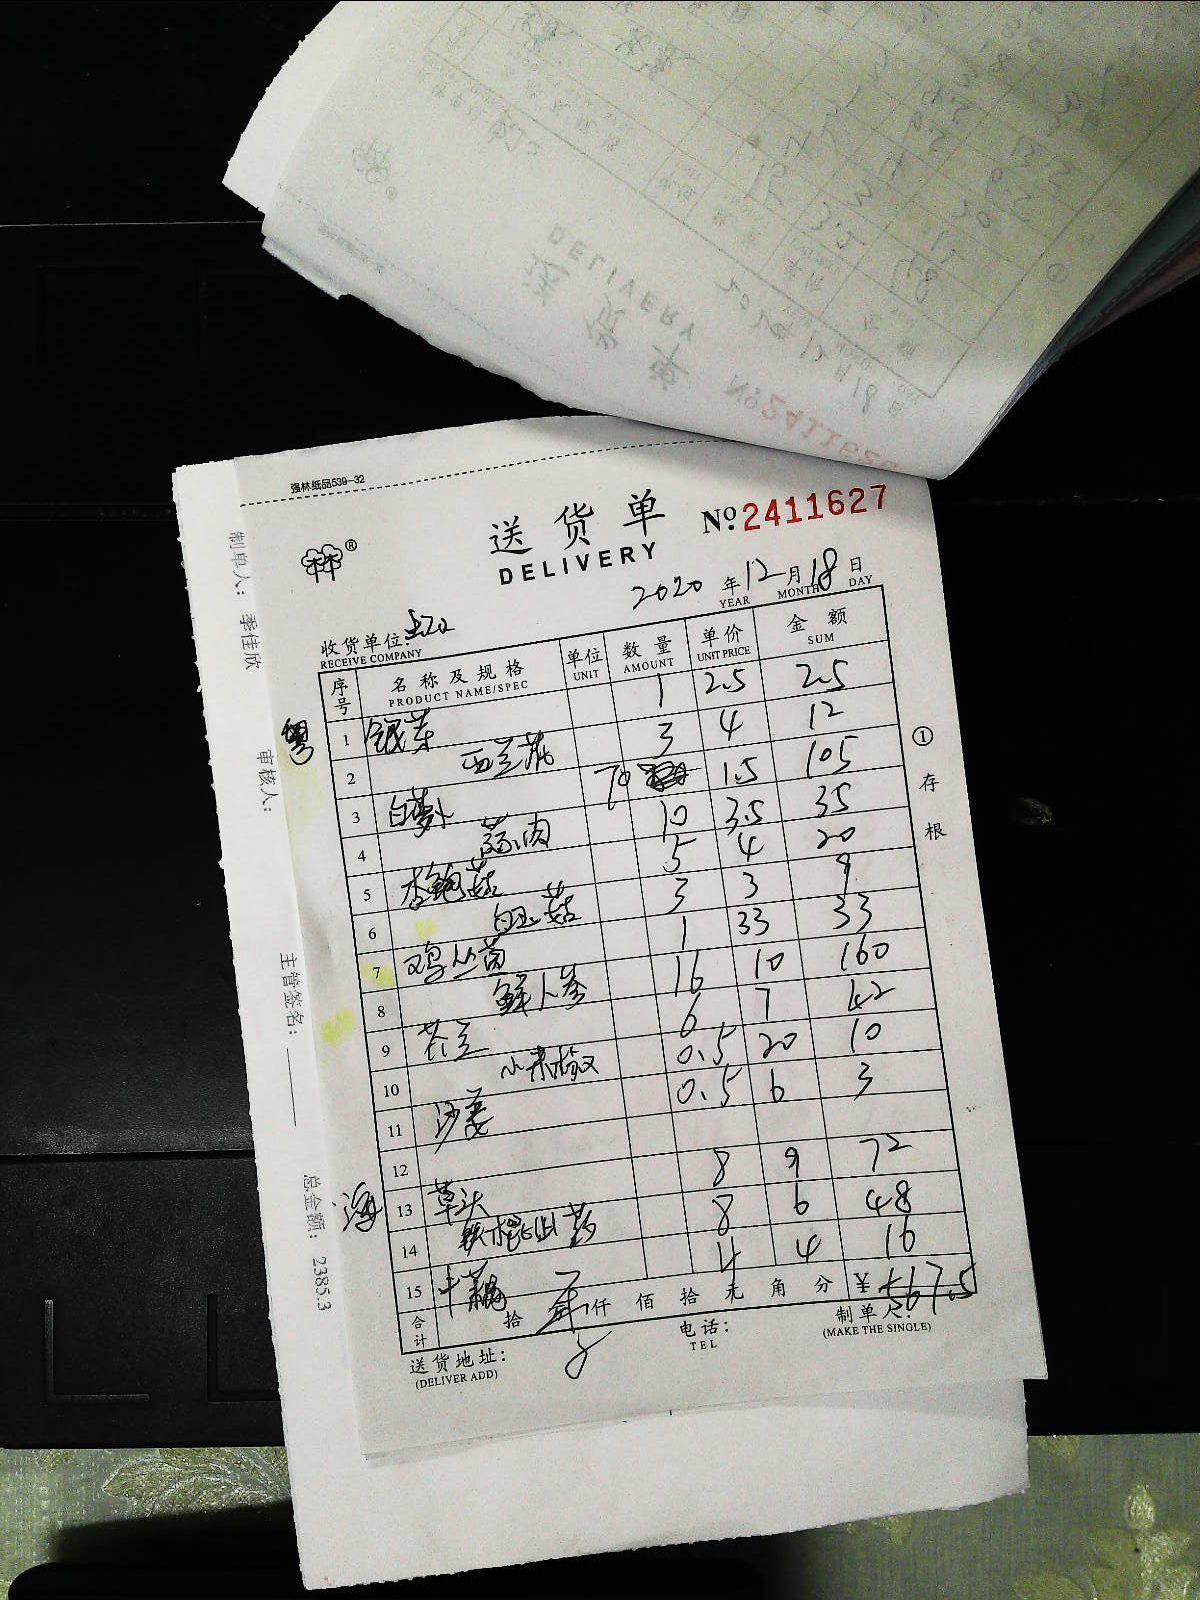 强林纸品539-32
送货单
DELIVERY
No.2411627
2020年12月18日
YEAR MONTH DAY
收货单位:
RECEIVE COMPANY
序号 名称及规格 单位 数量 单价 金额
PRODUCT NAME/SPEC UNIT AMOUNT UNIT PRICE SUM
粤
1 银芽 1 2.5 2.5
2 西兰花 3 4 12
3 白萝卜 70 1.5 105
4 蒜肉 10 3.5 35
5 杏鲍菇 5 4 20
6 白玉菇 3 3 9
7 鸡丛菌 1 33 33
8 鲜人参 16 10 160
9 荷豆 6 7 42
10 小米椒 0.5 20 10
11 沙姜 0.5 6 3
12
海
13 草头 8 9 72
14 铁棍山药 8 6 48
15 藕 4 4 16
合计 拾 仟 佰 拾 元 角 分 ¥ 567.5
送货地址:
(DELIVER ADD)
电话:
TEL
制单人:
(MAKE THE SINGLE)
①存根
制单人: 季佳欣
审核人:
主管签名:
总金额: 2385.3
送货单
DELIVERY